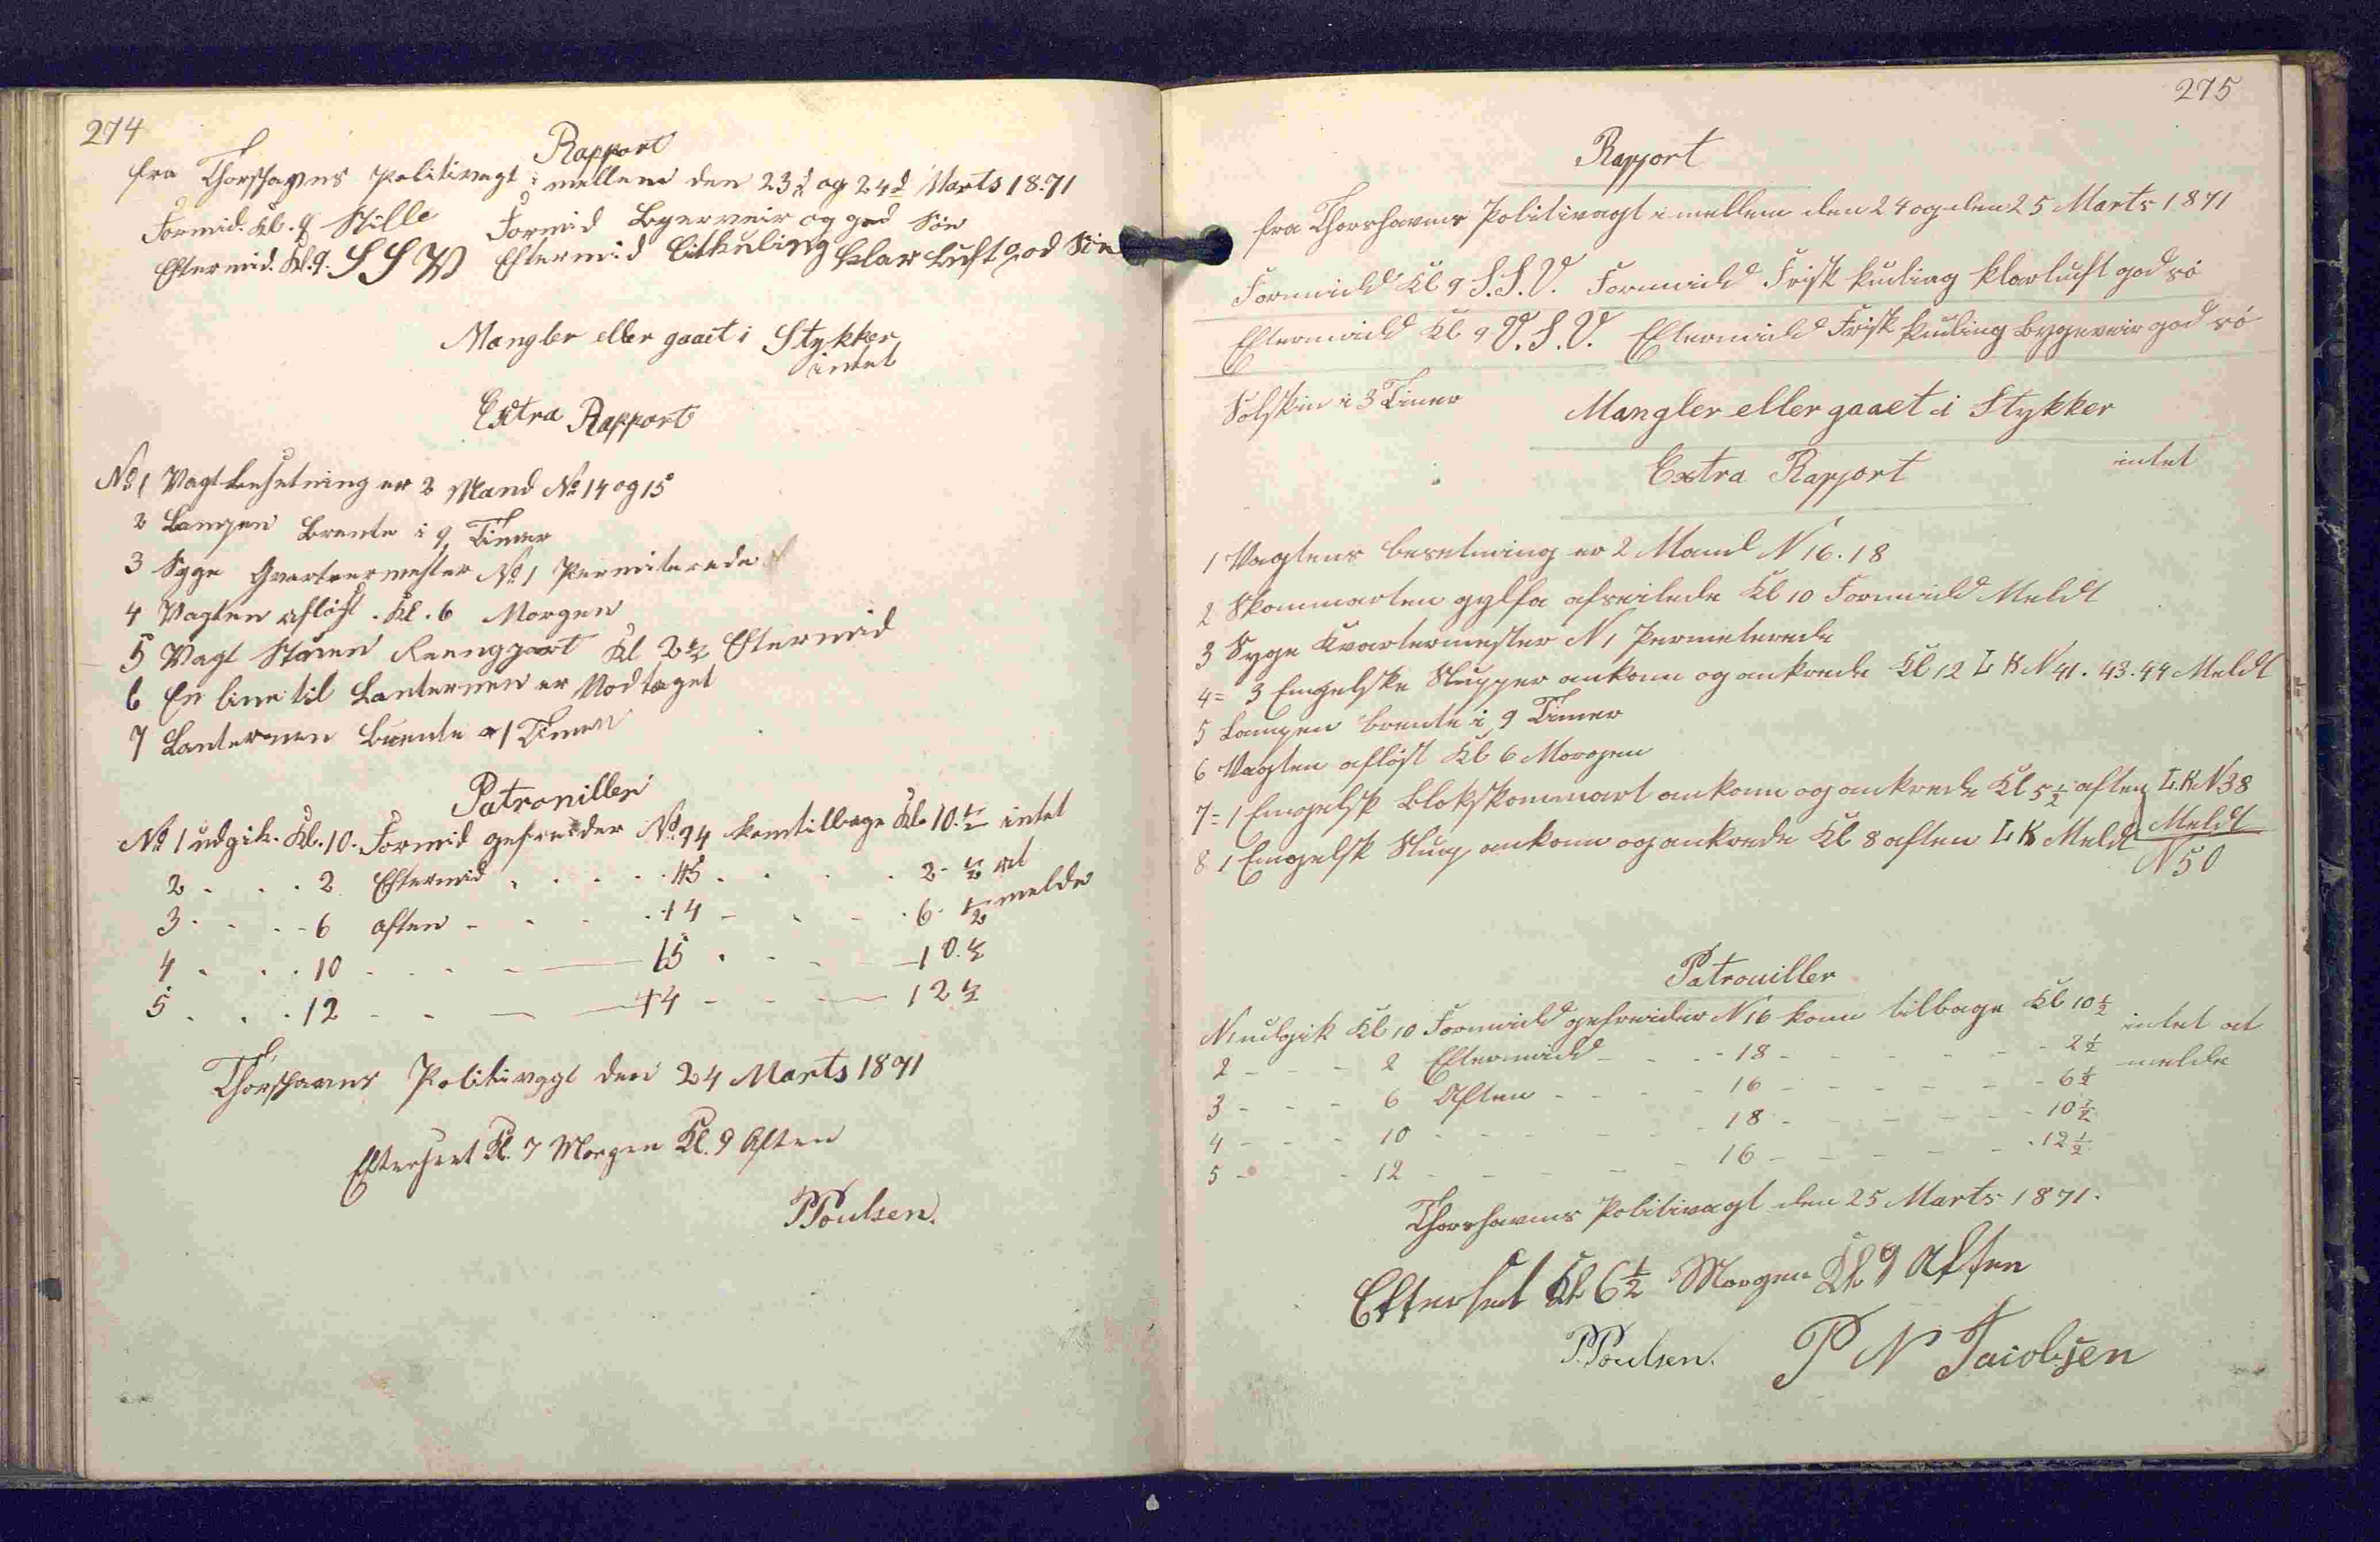 274
Rapport
fra Thorshavns Politivagt i mellem den 23d og 24d Marts 1871
Formid. Kl. 8 Stille Formid Bygerveir og god Söe
Eftermid. Kl. 9. SSW Eftermid Litkuling klar Luft god Söe
Mangler eller gaaet i Stykker
intet
Extra Rapport
No 1 Vagtbesetning er 2 Mand No 14 og 15
2 Lampen Brente i 9 Timer
3 Syge Qvarteermester No 1 Permiterede
4 Vagten aflöst. Kl. 6 Morgen
5 Vagt Stuen Reengjort Kl 2 1/2 Eftermid
6 En line til Lanternen er Modtaget
7 Lanternen Brente 1 Timer
Patrouiller
No 1 udgik. Kl. 10. Formid gefreider No 14 kom tilbage Kl. 10. 1/2 intet
2 . . . 2 Eftermid . . . . . 15 . . . . 2 - 1/2 at
3 . . . 6 aften - - - . 14 - - - . 6. 1/2 melde
4 . . . 10 - - - — 15 . . - — 10. 1/2
5 . . . 12 - - — — 14 - - — 12 1/2
Thorshavns Politivagt den 24 Marts 1871
Efterseet Kl. 7 Morgen Kl. 9 Aften
PPoulsen.
275
Rapport
fra Thorshavns Politivagt i mellem den 24 og den 25 Marts 1871
Formidd Kl 9 S.S.V. Formidd Frisk kuling klar luft god sö
Eftermidd Kl 9 V.S.V. Eftermidd Frisk kuling Bygeveir god sö
Solskin i 3 Timer Mangler eller gaaet i Stykker
intet
Extra Rapport
1 Vagtens besetning er 2 Mand N 16. 18
2 Skonnarten gylfa afseilede Kl 10 Formidd Meldt
3 Syge Kvartermester N 1 Permeterede
4 = 3 Engelske Slupper ankom og ankrede Kl 12 L K N 41. 43. 44 Meldt
5 Lampen brente i 9 Timer
6 Vagten aflöst Kl 6 Morgen
7 = 1 Engelsk Blokskonnart ankom og ankrede Kl 5 1/2 aften L K N 38
Meldt
8 1 Engelsk Slup ankom og ankrede Kl 8 aften L K Meldt N 50
Patrouiller
N 1 udgik Kl 10 Formidd gefreider N 16 kom tilbage Kl 10 1/2 intet at
2 - - - 2 Eftermidd - - - 18 - - - - - 2 1/2 melde
3 - - - 6 Aften - - - - 16 - - - - - 6 1/2
4 - - - 10 - - - - - 18 - - - - - 10 1/2
5 - - - 12 - - - - - 16 - - - - - 12 1/2
Thorshavns Politivagt den 25 Marts 1871.
Efterset Kl 6 1/2 Morgen Kl 9 Aften
P.Poulsen. P N Jacobsen